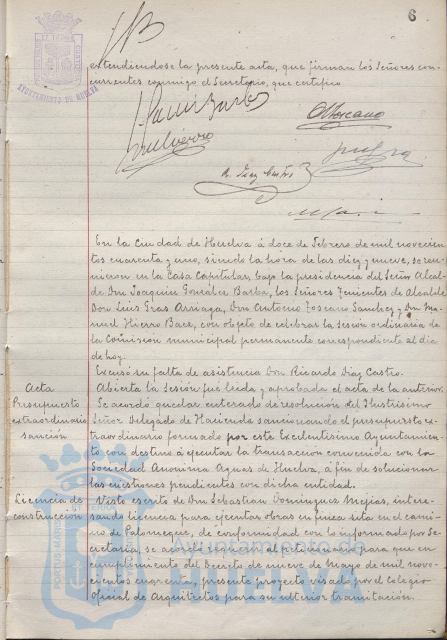 6
AYUNTAMIENTO DE HUELVA
extendiendose la presente acta, que firman los Señores con-
currentes conmigo el Secretario, que certifico
En la Ciudad de Huelva á doce de Febrero de mil novecien-
tos cuarenta y uno, siendo la hora de las diez y nueve, se reu-
nieron en la Casa Capitular, bajo la presidencia del Señor Alcal-
de Don Joaquin Gonzalez Barba, los Señores Tenientes de Alcalde
Don Luis Gras Arriaga, Don Antonio Toscano Sanchez y Don Ma-
nuel Hierro Baez, con objeto de celebrar la sesión ordinaria de
la Comision municipal permanente correspondiente al dia
de hoy.
Excusó su falta de asistencia Don Ricardo Diaz Castro.
Acta
Abierta la Sesión fué leida y aprobada el acta de la anterior.
Presupuesto
extraordinario
sanción
Se acordó quedar enterado de resolución del Ilustrisimo
Señor Delegado de Hacienda sancionando el presupuesto ex-
traordinario formado por este Excelentisimo Ayuntamien-
to con destino á ejecutar la transaccion convenida con la
Sociedad Anonima Aguas de Huelva, á fin de solucionar
las cuestiones pendientes con dicha entidad.
Licencia de
construccion
Visto escrito de Don Sebastian Dominguez Mejias, intere-
sando licencia para ejecutar obras en finca sita en el cami-
no de Palomeque, de conformidad con lo informado por Se-
cretaria, se acordó al peticionario para que en
cumplimiento del Decreto de nueve de Mayo de mil nove-
cientos cuarenta, presente proyecto visado por el Colegio
Oficial de Arquitectos para su ulterior tramitación.